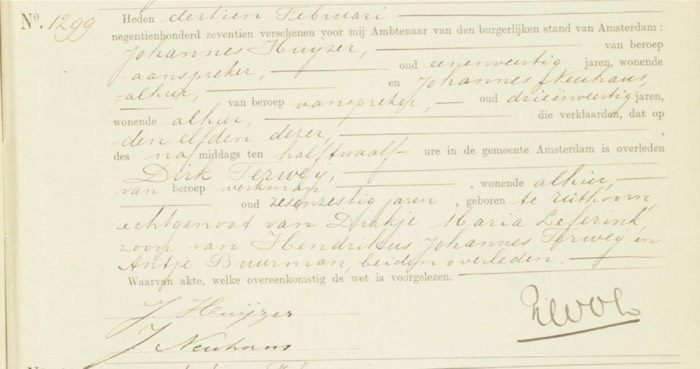 No. 1299 Heden dertien Februari
negentienhonderd zeventien verschenen voor mij Ambtenaar van den burgerlijken stand van Amsterdam:
Johannes Huijzer, van beroep
aanspreker, oud eenenveertig jaren, wonende
alhier, en Johannes Neuhaus,
van beroep aanspreker, oud drieënveertig jaren,
wonende alhier, die verklaarden, dat op
den elfden dezer,
des na middags ten half twaalf ure in de gemeente Amsterdam is overleden
Dirk Terwey,
van beroep werkman, wonende alhier,
oud zesenzestig jaren, geboren te Uithoorn,
echtgenoot van Dirkje Maria Leferink,
zoon van Hendrikus Johannes Terwey en
Antje Buurman, beiden overleden.
Waarvan akte, welke overeenkomstig de wet is voorgelezen.
J Huijzer
J Neuhaus